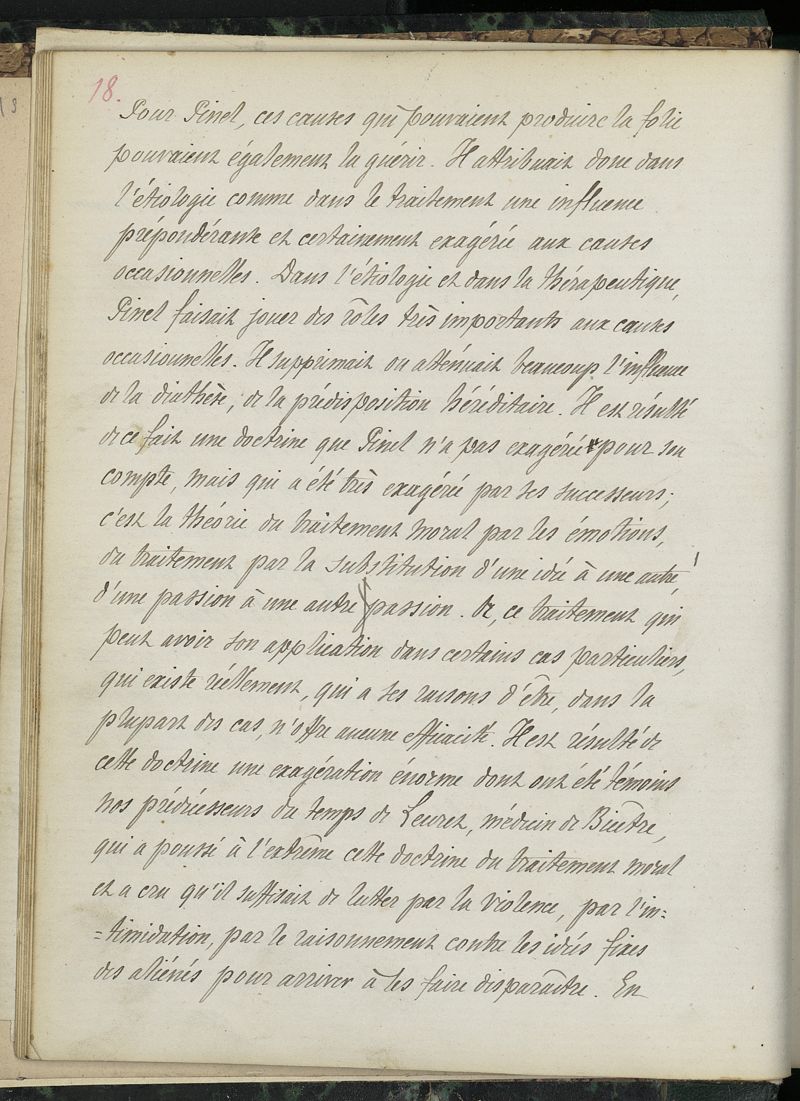 18.
Pour Pinel, ces causes qui pouvaient produire la folie
pouvaient également la guérir. Il attribuait donc dans
l'étiologie comme dans le traitement une influence
prépondérante et certainement exagérée aux causes
occasionnelles. Dans l'étiologie et dans la thérapeutique,
Pinel faisait jouer des rôles très importants aux causes
occasionnelles. Il supprimait ou atténuait beaucoup l'influence
de la diathèse, de la prédisposition héréditaire. Il est résulté
de ce fait une doctrine que Pinel n'a pas exagérée pour son
compte, mais qui a été très exagérée par ses successeurs;
c'est la théorie du traitement moral par les émotions,
du traitement par la substitution d'une idée à une autre,
d'une passion à une autre passion. Or, ce traitement qui
peut avoir son application dans certains cas particuliers,
qui existe réellement, qui a ses raisons d'être, dans la
plupart des cas, n'offre aucune efficacité. Il est résulté de
cette doctrine une exagération énorme dont ont été témoins
nos prédécesseurs du temps de Leuret, médecin de Bicêtre,
qui a poussé à l'extrême cette doctrine du traitement moral
et a cru qu'il suffisait de lutter par la violence, par l'in=
=timidation, par le raisonnement contre les idées fixes
des aliénés pour arriver à les faire disparaître. En